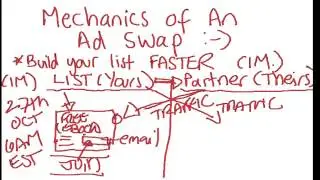 Mechanics of An
Ad Swap :-)
* Build your list FASTER (IM.)
(IM) LIST (Yours) Partner (Theirs)
27th
OCT
6AM
EST
FREE
EBOOK
email
JOIN
TRAFFIC
TRAFFIC